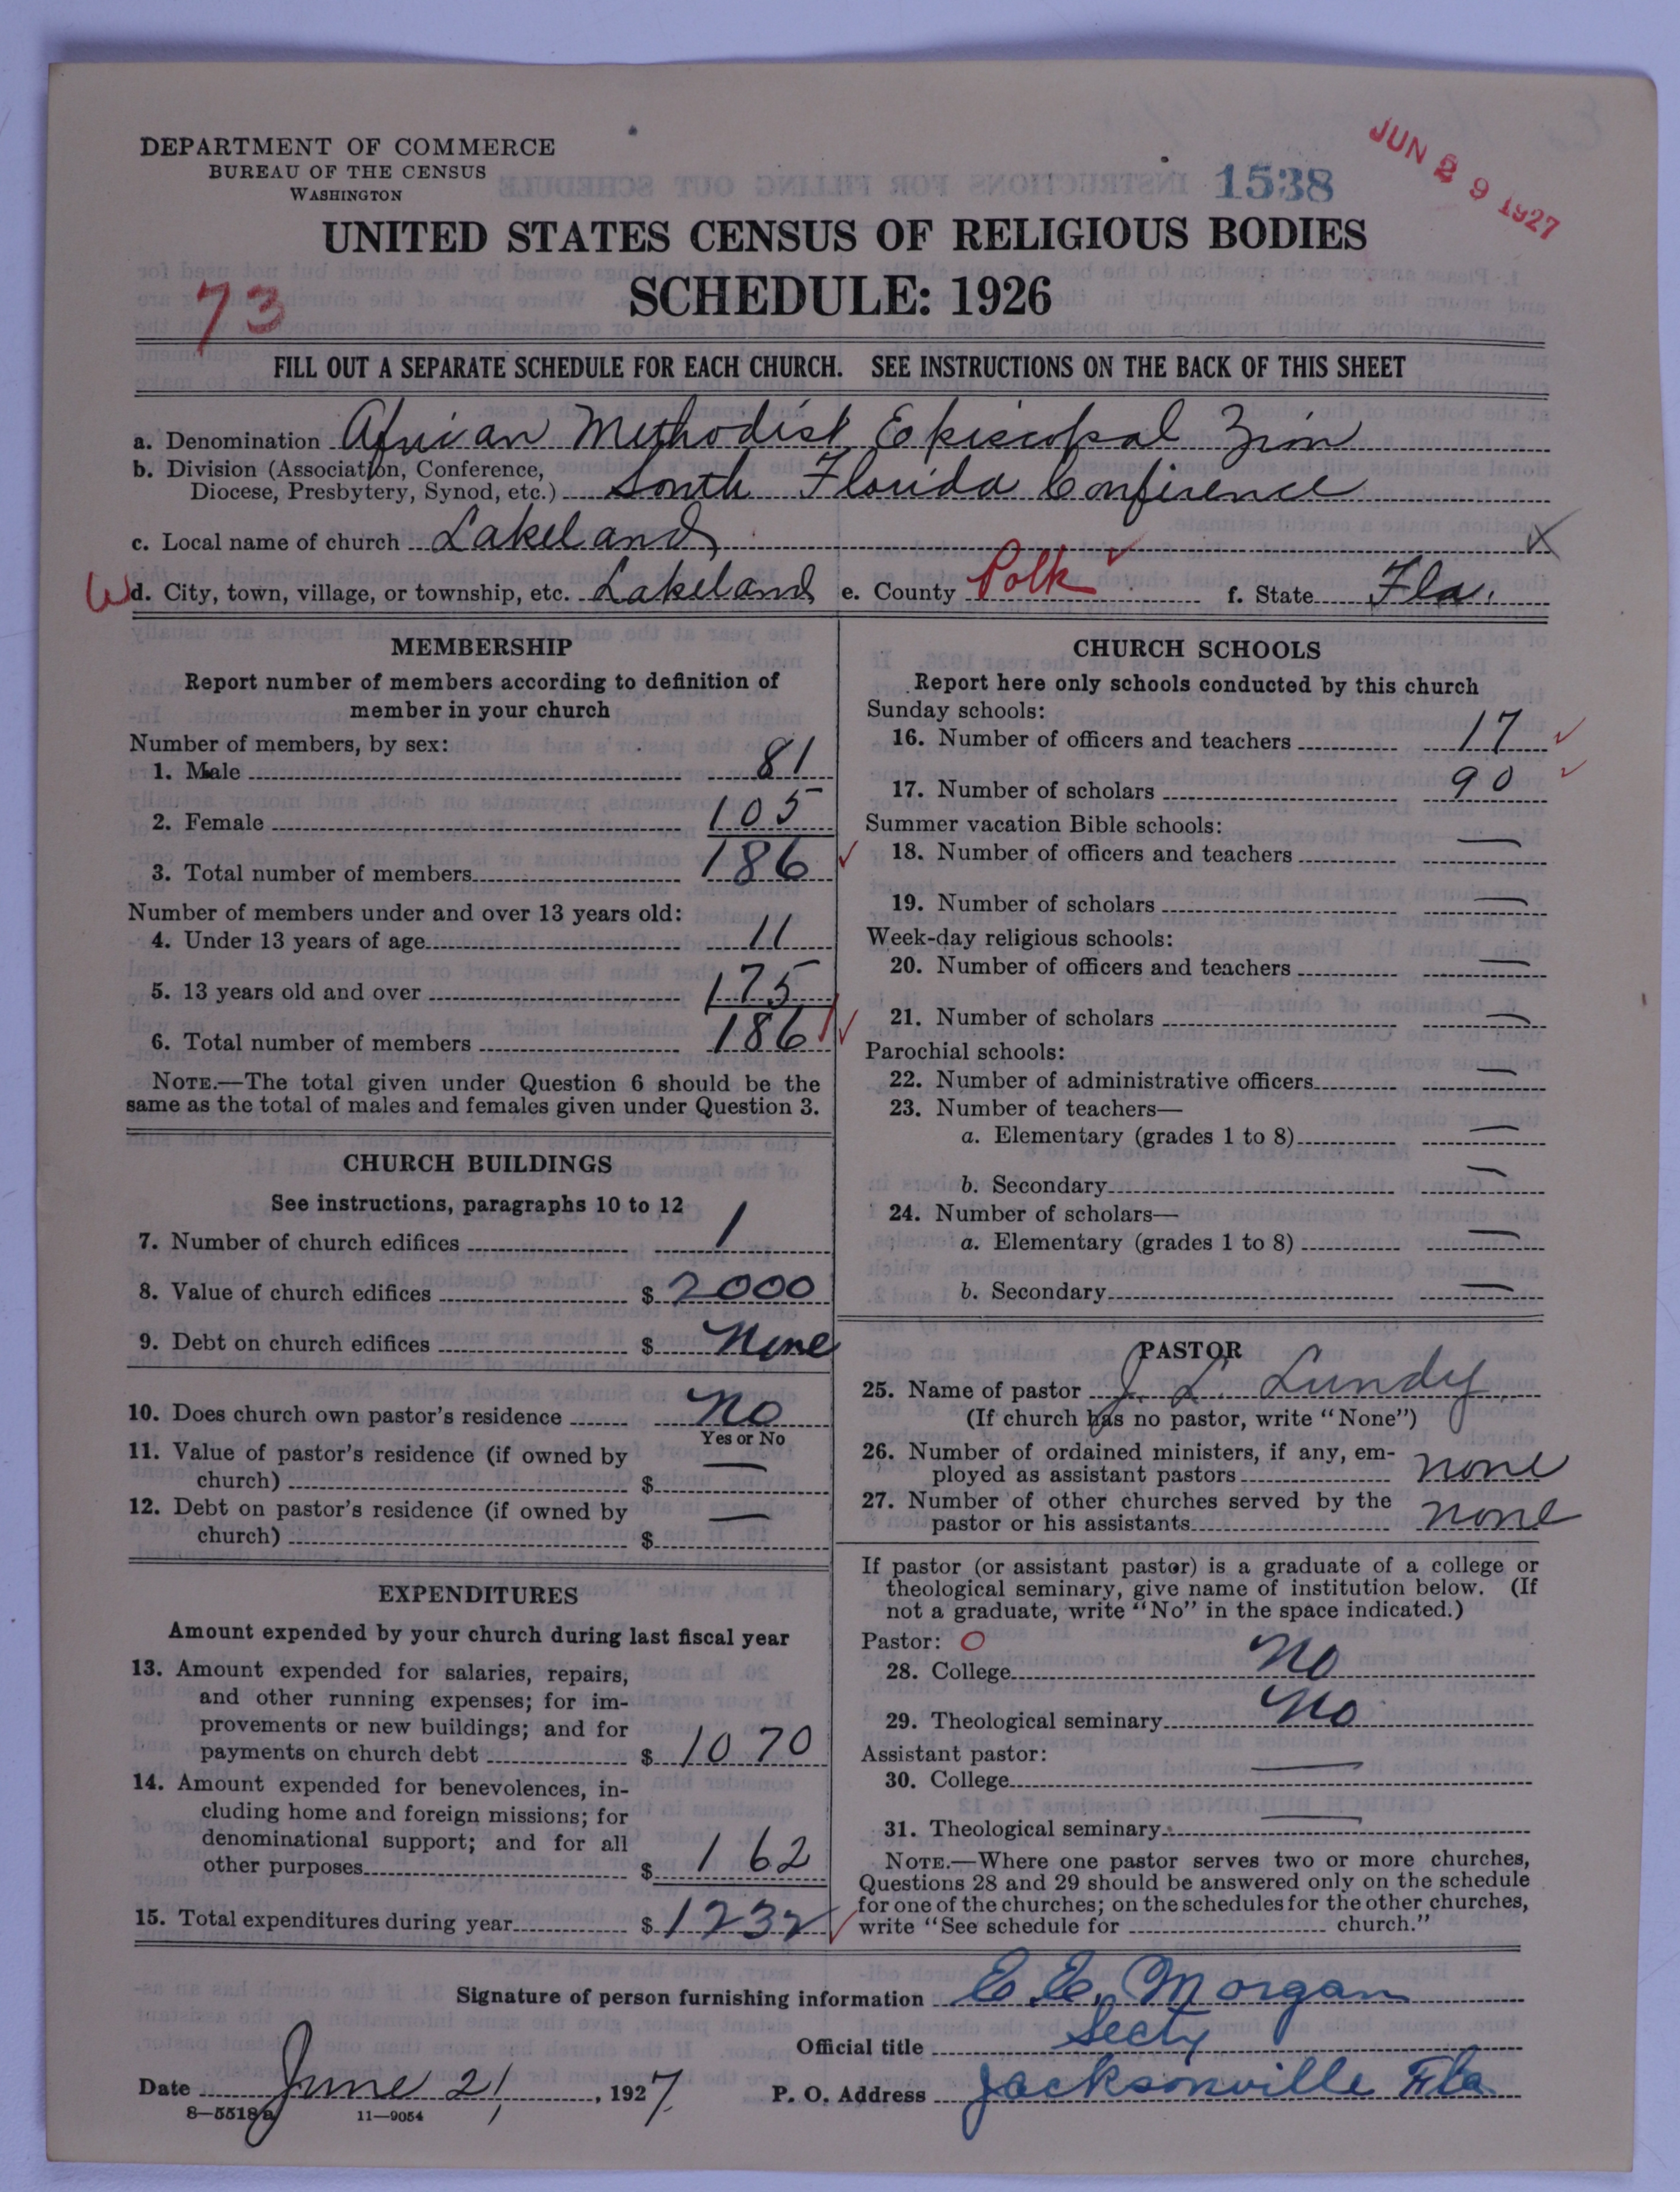 DEPARTMENT OF COMMERCE
BUREAU OF THE CENSUS
WASHINGTON
1538
JUN 29 1927
UNITED STATES CENSUS OF RELIGIOUS BODIES
SCHEDULE: 1926
73
FILL OUT A SEPARATE SCHEDULE FOR EACH CHURCH. SEE INSTRUCTIONS ON THE BACK OF THIS SHEET
a. Denomination African Methodist Episcopal Zion
b. Division (Association, Conference,
Diocese, Presbytery, Synod, etc.) South Florida Conference
c. Local name of church Lakeland X
W d. City, town, village, or township, etc. Lakeland e. County Polk ✓ f. State Fla.
MEMBERSHIP
Report number of members according to definition of
member in your church
Number of members, by sex:
1. Male 81
2. Female 105
3. Total number of members 186 ✓
Number of members under and over 13 years old:
4. Under 13 years of age 11
5. 13 years old and over 175
6. Total number of members 186 ✓
NOTE.—The total given under Question 6 should be the
same as the total of males and females given under Question 3.
CHURCH BUILDINGS
See instructions, paragraphs 10 to 12
7. Number of church edifices 1
8. Value of church edifices $ 2000
9. Debt on church edifices $ None
10. Does church own pastor's residence No
Yes or No
11. Value of pastor's residence (if owned by
church) $ —
12. Debt on pastor's residence (if owned by
church) $ —
EXPENDITURES
Amount expended by your church during last fiscal year
13. Amount expended for salaries, repairs,
and other running expenses; for im-
provements or new buildings; and for
payments on church debt $ 1070
14. Amount expended for benevolences, in-
cluding home and foreign missions; for
denominational support; and for all
other purposes $ 162
15. Total expenditures during year $ 1232 ✓
CHURCH SCHOOLS
Report here only schools conducted by this church
Sunday schools:
16. Number of officers and teachers 17 ✓
17. Number of scholars 90 ✓
Summer vacation Bible schools:
18. Number of officers and teachers —
19. Number of scholars —
Week-day religious schools:
20. Number of officers and teachers —
21. Number of scholars —
Parochial schools:
22. Number of administrative officers —
23. Number of teachers—
a. Elementary (grades 1 to 8) —
b. Secondary —
24. Number of scholars—
a. Elementary (grades 1 to 8) —
b. Secondary —
PASTOR
25. Name of pastor J. L. Lundy
(If church has no pastor, write "None")
26. Number of ordained ministers, if any, em-
ployed as assistant pastors none
27. Number of other churches served by the
pastor or his assistants none
If pastor (or assistant pastor) is a graduate of a college or
theological seminary, give name of institution below. (If
not a graduate, write "No" in the space indicated.)
Pastor: O
28. College No
29. Theological seminary No
Assistant pastor:
30. College —
31. Theological seminary —
NOTE.—Where one pastor serves two or more churches,
Questions 28 and 29 should be answered only on the schedule
for one of the churches; on the schedules for the other churches,
write "See schedule for church."
Signature of person furnishing information E. E. Morgan
Official title Secty
Date June 21, 1927. P. O. Address Jacksonville Fla
8—5518a 11—9054